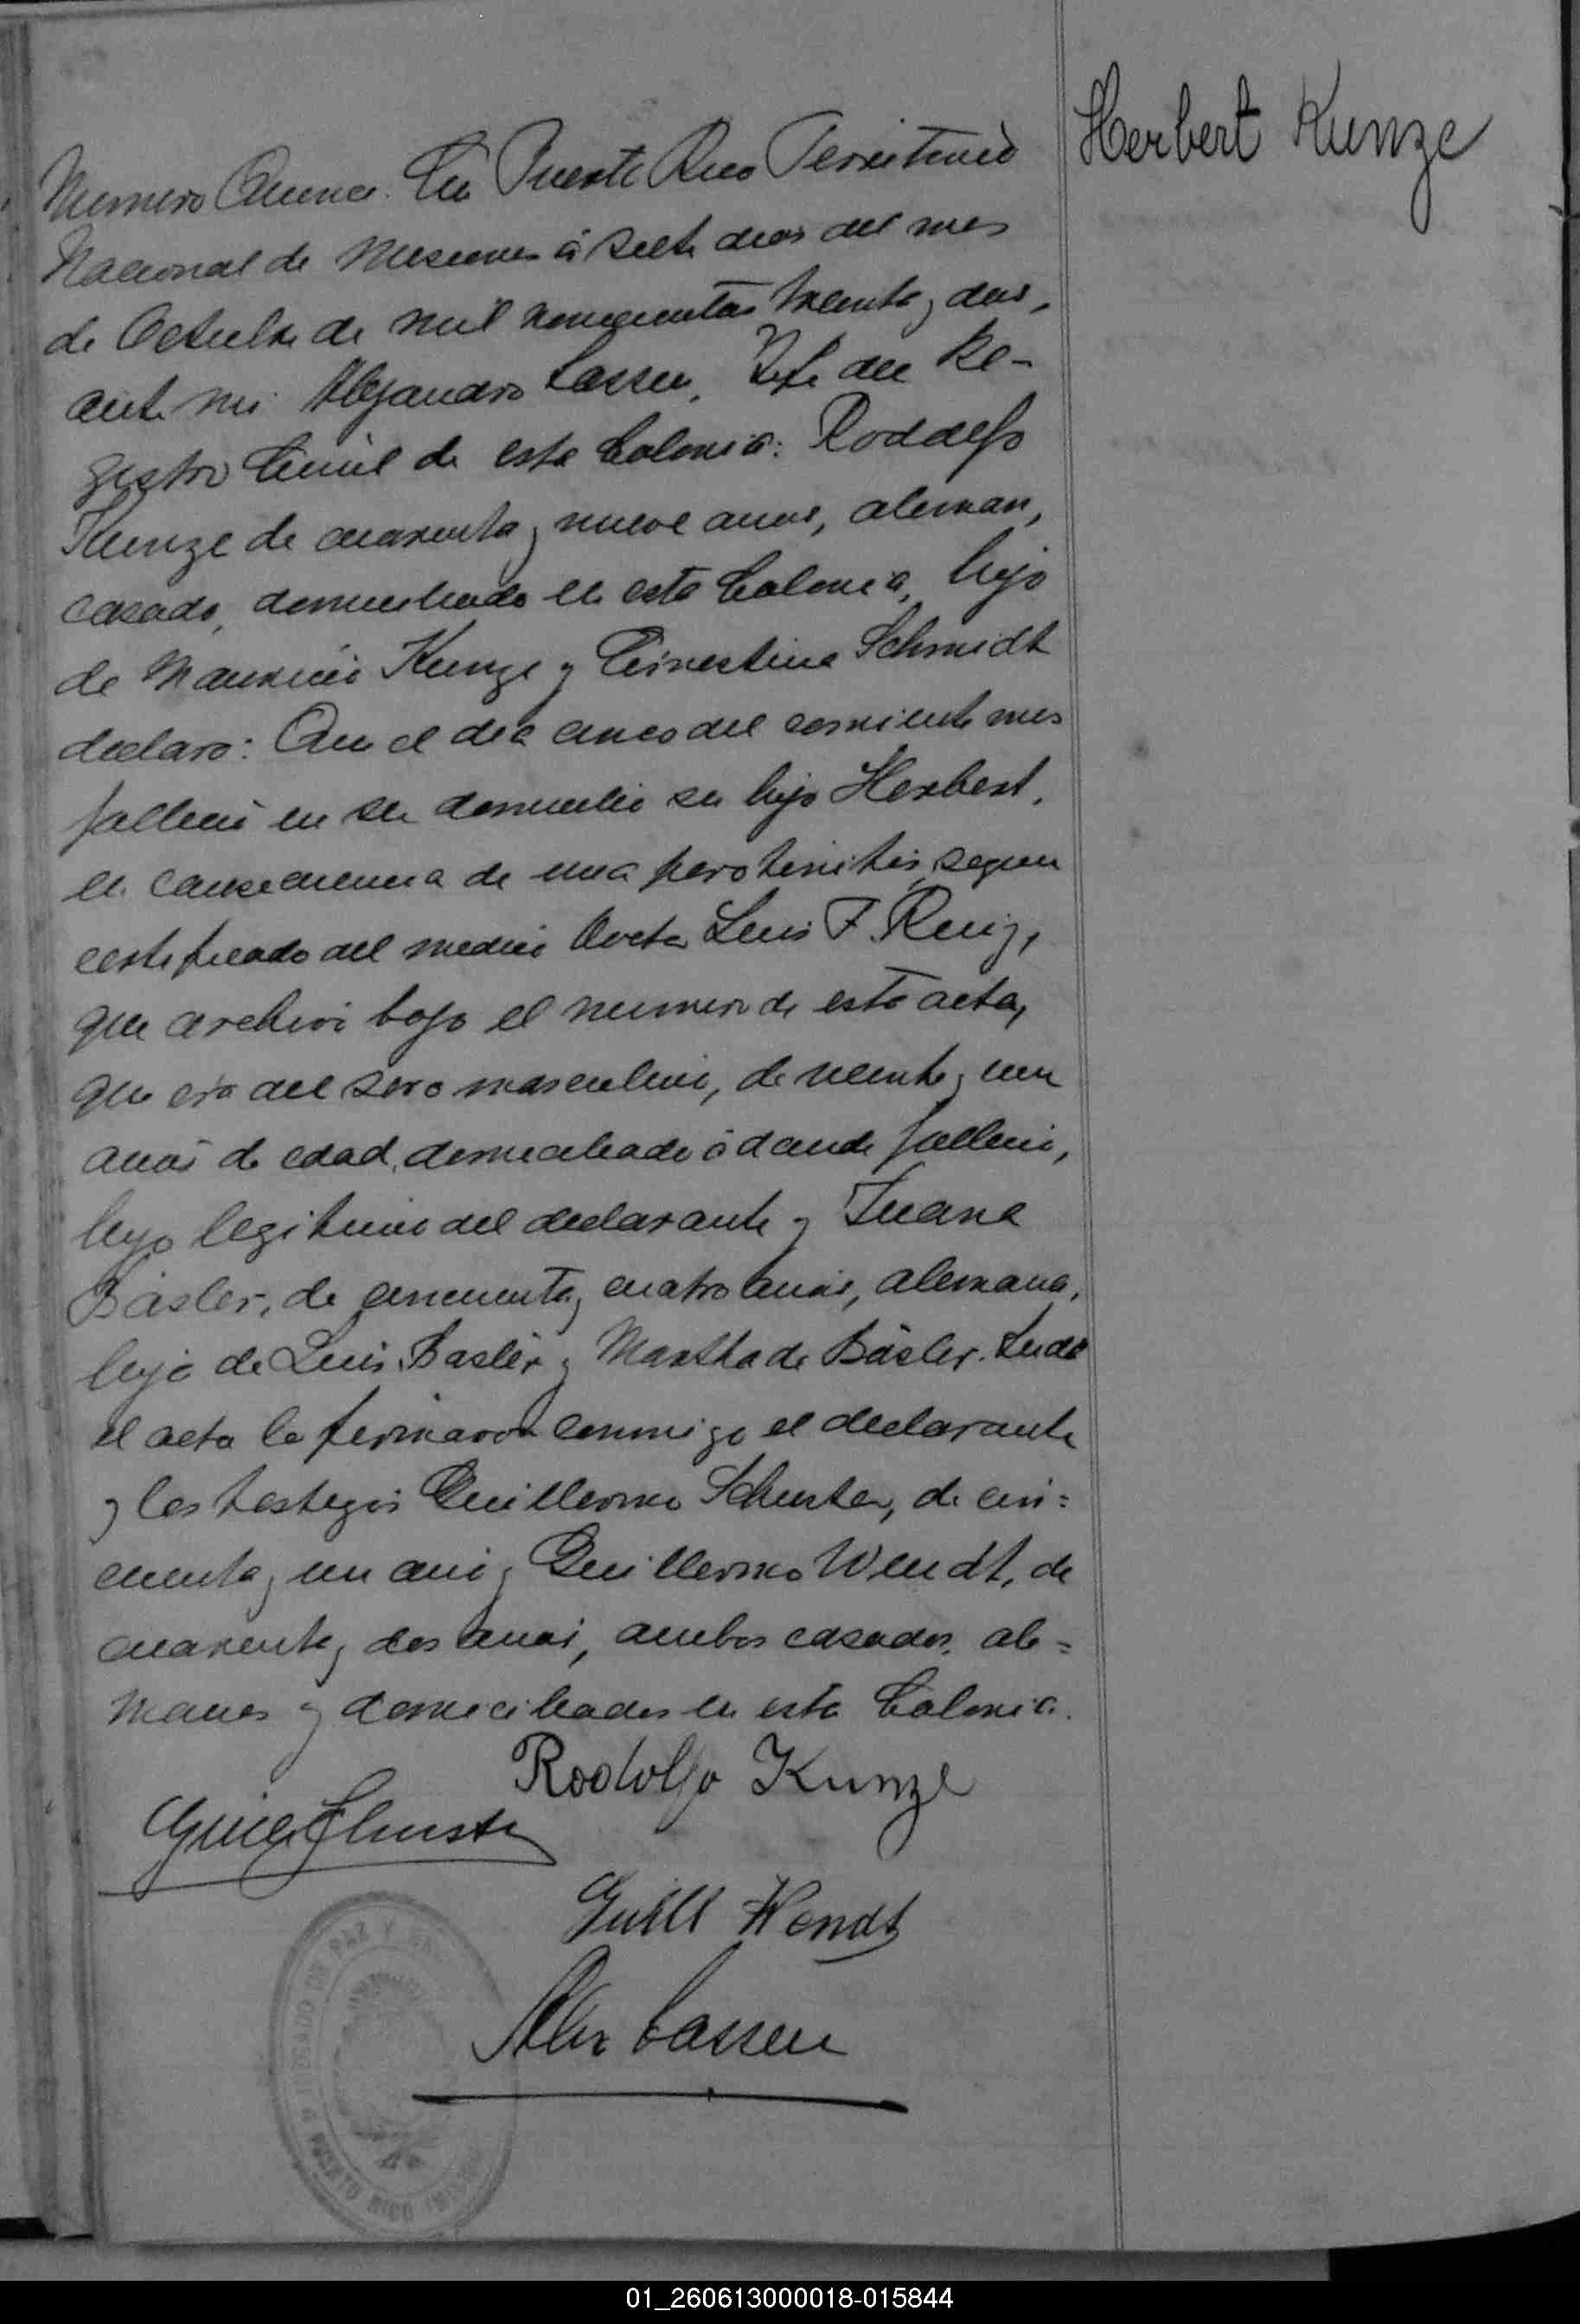 Herbert Kunze
Numero Quince. En Puerto Rico Territorio
Nacional de Misiones á siete dias del mes
de Octubre de mil novecientos treinta y dos,
ante mi Alejandro Lassen, Jefe del Re-
gistro Civil de esta Colonia: Rodolfo
Kunze de cuarenta y nueve anos, aleman,
casado, domiciliado en esta Colonia, hijo
de Mauricio Kunze y Ernestina Schmidt
declaro: Que el dia cinco del corriente mes
fallecio en su domicilio su hijo Herbert,
en consecuencia de una perotinitis, segun
certificado del medico Luis F. Ruiz,
que archivo bajo el numero de esta acta,
que era del sexo masculino, de veinte y un
anos de edad, domiciliado á donde fallecio,
hijo legitimo del declarante y Juana
Bäsler, de cincuenta y cuatro anos, alemana,
hija de Luis Basler y Martha de Bäsler. Leida
el acta la firmaron conmigo el declarante
y los testigos Guillermo Schuster, de cin=
cuenta y un ano y Guillermo Wendt, de
cuarenta y dos anos, ambos casados, ale=
manes y domiciliados en esta Colonia.
Rodolfo Kunze
Guill. Schuster
Guill Wendt
Alex Lassen
JUZGADO DE PAZ Y
PUERTO RICO
01_260613000018-015844